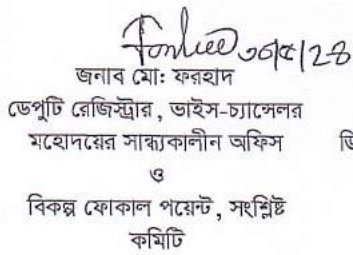 ৩০/৫/২৪
জনাব মো: ফরহাদ
ডেপুটি রেজিস্ট্রার, ভাইস-চ্যান্সেলর
মহোদয়ের সান্ধ্যকালীন অফিস
ও
বিকল্প ফোকাল পয়েন্ট, সংশ্লিষ্ট
কমিটি